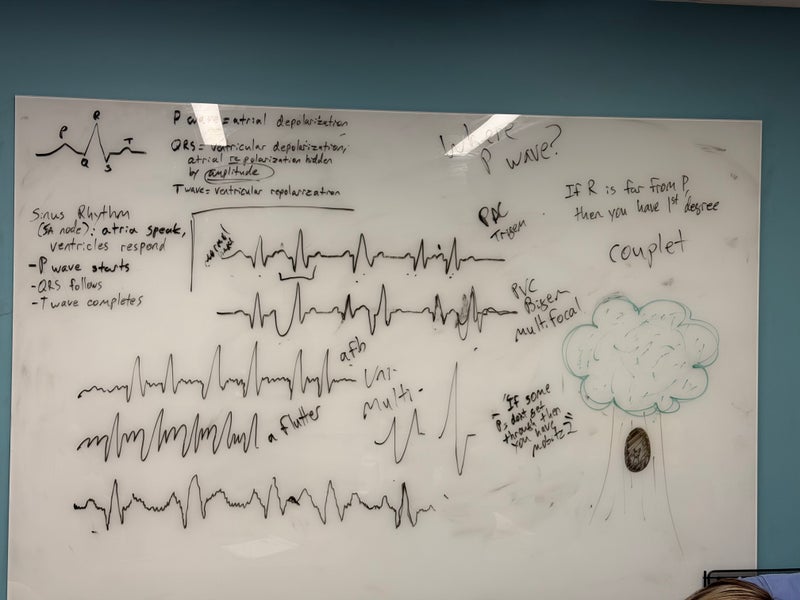 R
P
T
Q
S
P wave = atrial depolarization
QRS = ventricular depolarization,
atrial repolarization hidden
by amplitude
T wave = ventricular repolarization
Where
P wave?
If R is far from P,
then you have 1st degree
couplet
Sinus Rhythm
(SA node): atria speak,
ventricles respond
- P wave starts
- QRS follows
- T wave completes
PAC
Trigem
PVC
Bigem
multifocal
afib
Uni-
Multi-
a flutter
"If some
P's don't get
through then
you have
mobitz 2"